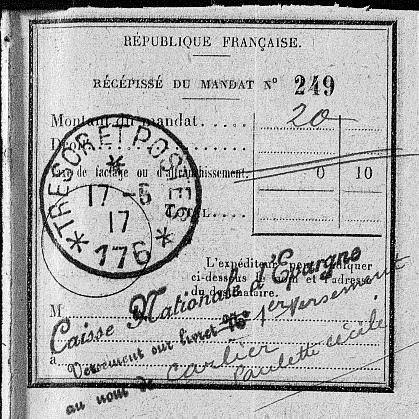 RÉPUBLIQUE FRANÇAISE.
RÉCÉPISSÉ DU MANDAT N° 249
Montant du mandat..... 20
Droit
Taxe de factage ou d'affranchissement. 0 10
TOTAL
TRESOR ET POSTES
17 - 5
17
* 176 *
L'expéditeur peut indiquer
ci-dessous le nom et l'adresse
du destinataire.
M
Caisse Nationale d'Epargne
à Versement sur livret N° 1er versement
au nom de Carlier
Paulette Cécile